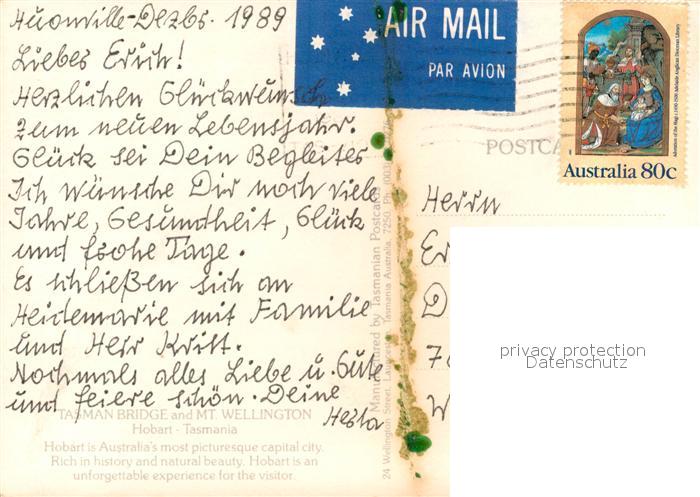 Huonville-Dezbs. 1989
Liebes Erich!
Herzlichen Glückwunsch
zum neuen Lebensjahr.
Glück sei Dein Begleiter
Ich wünsche Dir noch viele
Jahre, Gesundheit, Glück
und frohe Tage.
Es schließen sich an
Heidemarie mit Familie
und Herr Kritt.
Nochmals alles Liebe u. Gute
und feiere schön. Deine
Herta
TASMAN BRIDGE and MT. WELLINGTON
Hobart - Tasmania
Hobart is Australia's most picturesque capital city.
Rich in history and natural beauty. Hobart is an
unforgettable experience for the visitor.
Manufactured by Tasmanian Postcards
24 Wellington Street, Launceston, Tasmania Australia, 7250. Ph.
AIR MAIL
PAR AVION
POSTCA
Adoration of the Magi c.1490-1500 Adelaide Anglican Diocesan Library
Australia 80c
Herrn
Er
D
7
W
privacy protection
Datenschutz